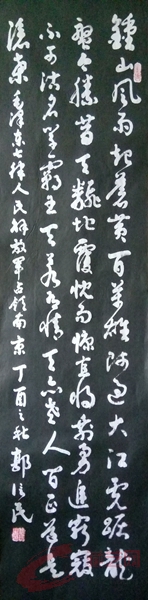 鐘山風雨起蒼黄百萬雄師過大江虎踞龍
盤今勝昔天翻地覆慨而慷宜將剩勇追窮寇
不可沽名學霸王天若有情天亦老人間正道是
滄桑 毛泽东七律人民解放軍占領南京 丁酉之秋 郭民